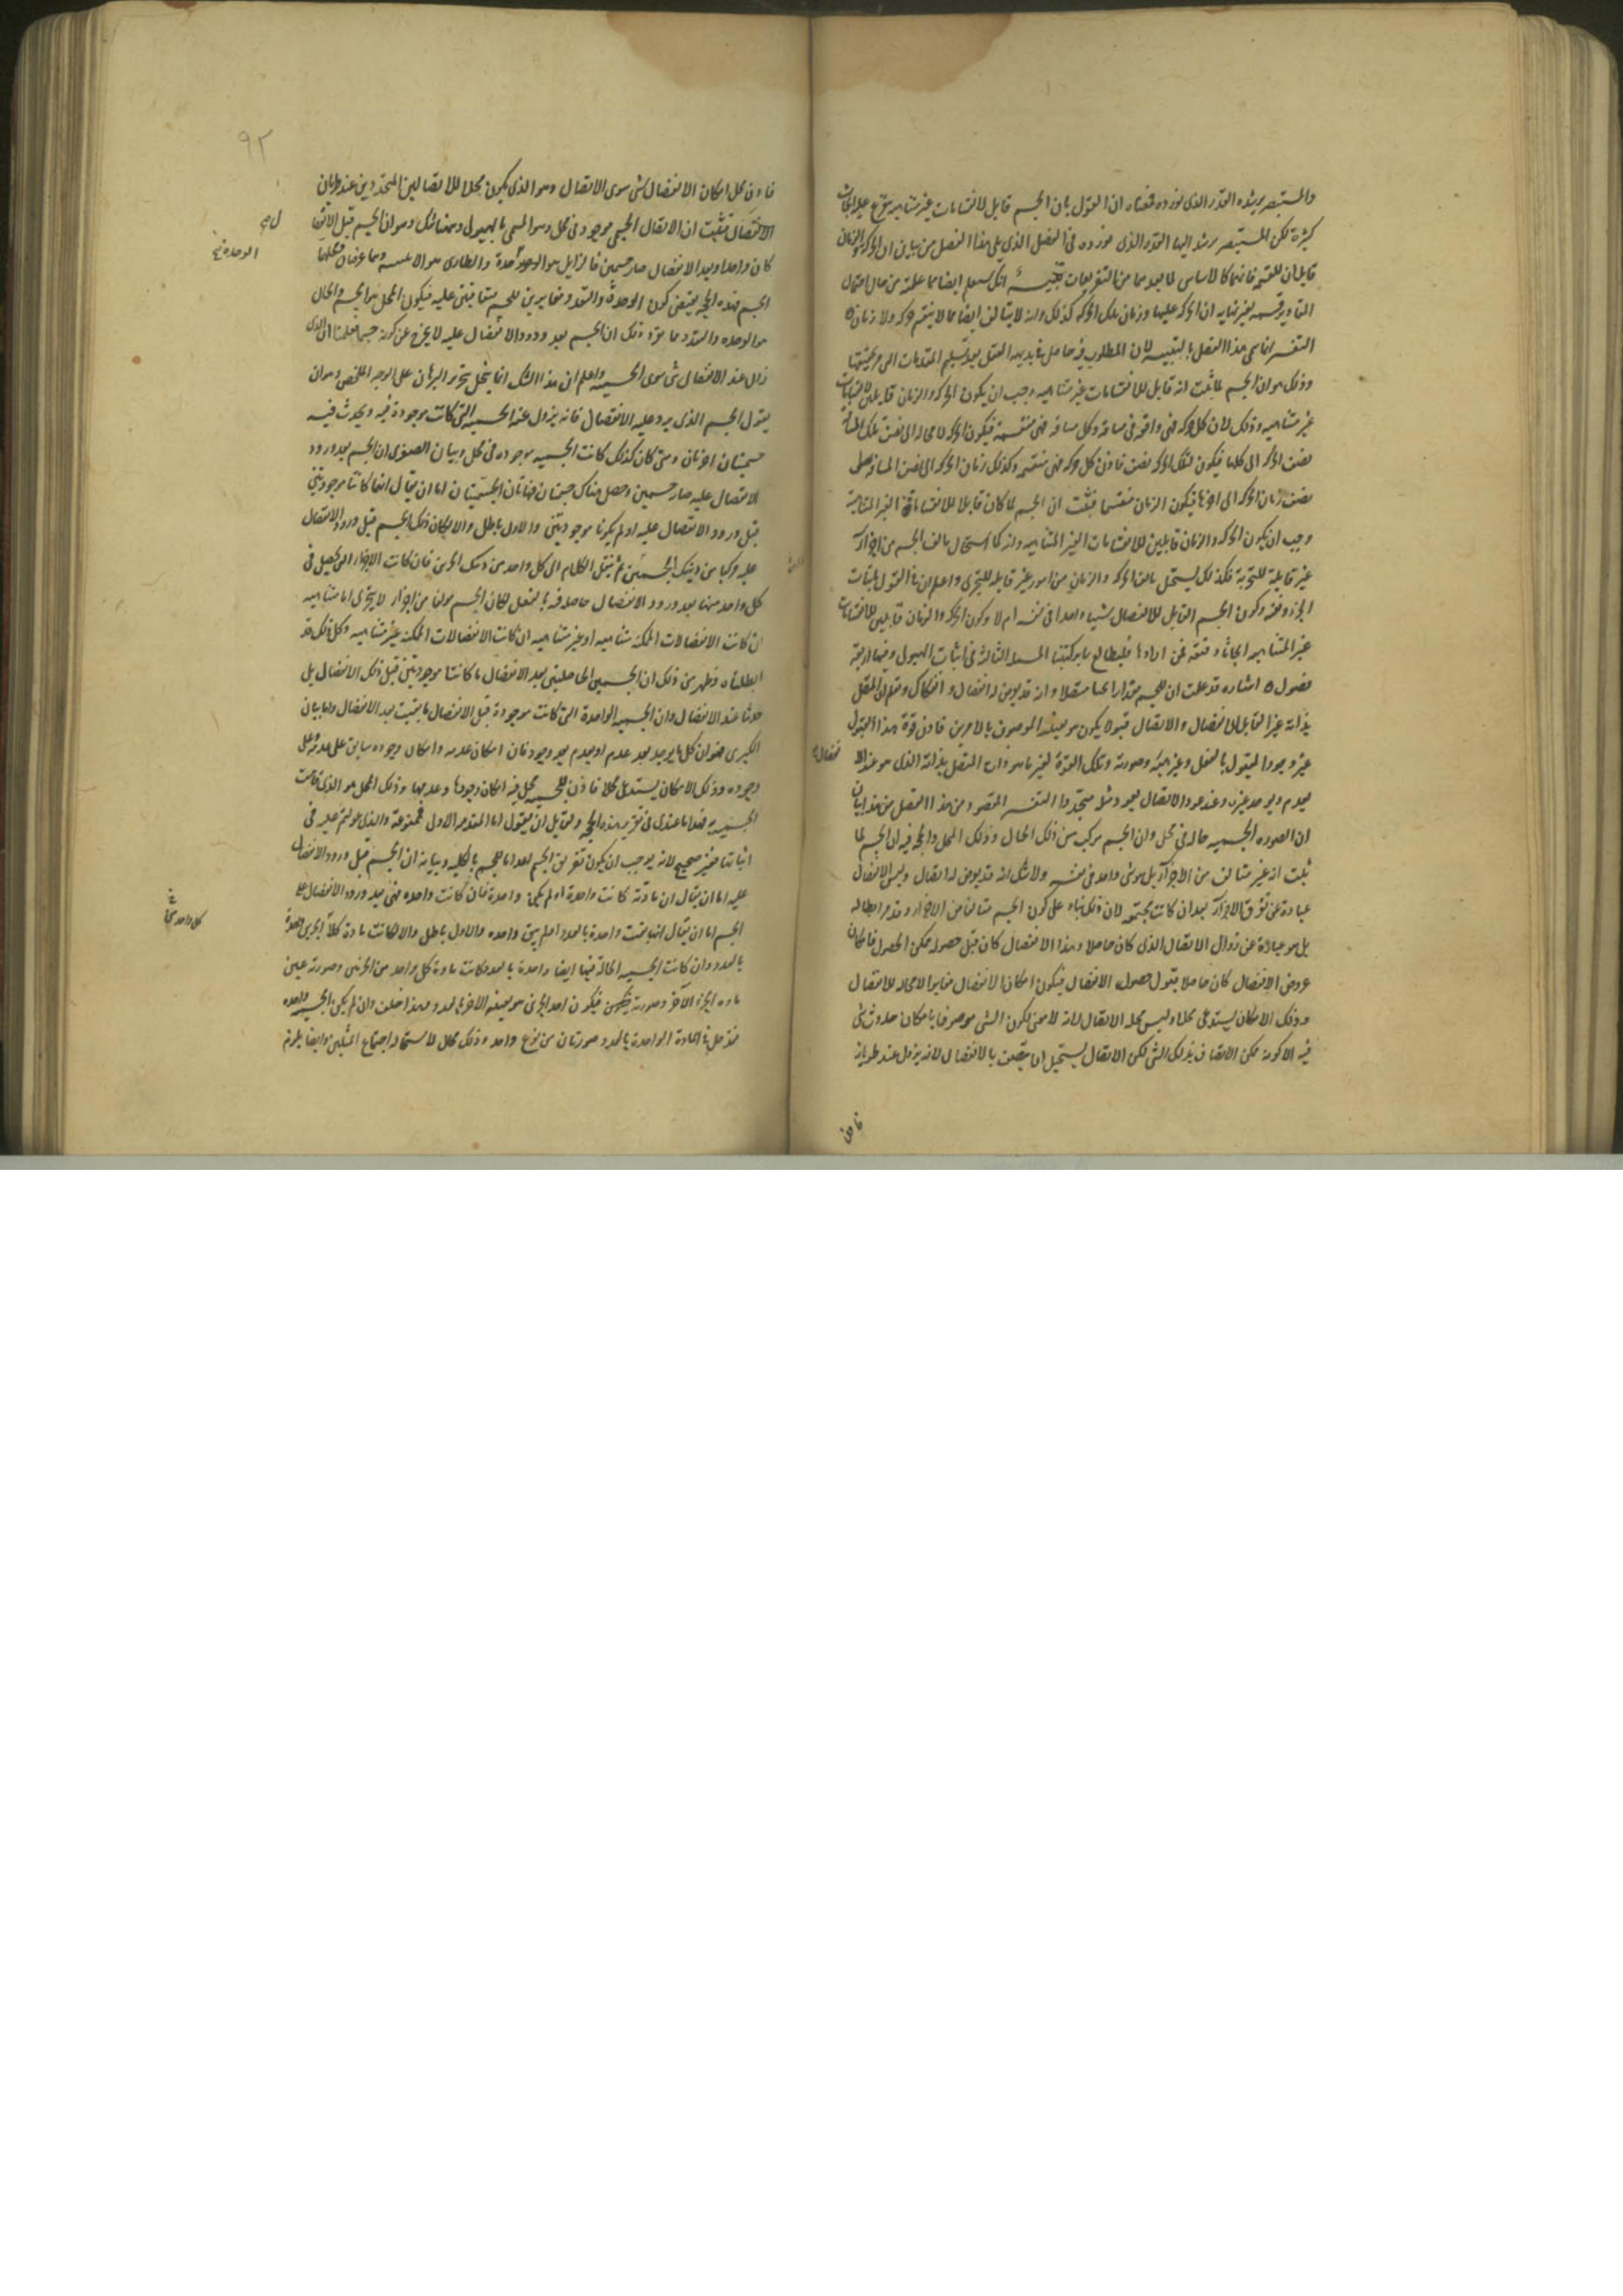 والمستبصر يرشده القدر الذى نورده قصاه ان القول بان الجسم قابل لانقسامات غير متناهيه يتفرع عليه ابحاث
كثيرة لكن المستبصر يرشد اليها القدر الذى نورده فى الفصل الذى يلى هذا الفصل من بيان ان الحركة والزمان
قابلان للقسمه فانهما كالاساس لما بعدهما من التفريعات انك ستعلم ايضا مما علمته من حال احتمال
المقادير قسمة بغير نهايه ان الحركة عليها وزمان تلك الحركة كذلك وانه لا يتالف ايضا مما لا ينقسم حركه ولا زمان
التفسير انما سمى هذا الفصل بالتنبيه لان المطلوب فيه حاصل فى بديهه العقل بعد تسليم المقدمات التى مر تحقيقها
وذلك هو ان الجسم لما ثبت انه قابل للانقسامات غير متناهيه وجب ان يكون الحركه والزمان قابلين لانقسامات
غير متناهيه وذلك لان كل حركه فهى واقعه فى مسافه وكل مسافه فهى منقسمه فيكون الحركه لا محاله الى نصف تلك المسافة
نصف الحركه الى كلها فيكون لتلك الحركه نصف فاذن كل حركه فهى منقسمه وكذلك زمان الحركه الى نصف المسافه
نصف زمان الحركه الى اخرها فيكون الزمان منقسما فثبت ان الجسم لما كان قابلا للانقسامات الغير المتناهية
وجب ان يكون الحركه والزمان قابلين للانقسامات الغير المتناهيه وانه كما استحال تالف الجسم من اجزاء
غير قابلة للتجزية فكذلك يستحيل تالف الحركه والزمان من امور غير قابله للتجزى واعلم ان فى القول باثبات
الجزء ونفيه وكون الجسم القابل للانفصال شيئا واحدا فى نفسه ام لا وكون الحركه والزمان قابلين للانقسامات
غير المتناهيه ابحاثا دقيقه فمن ارادها فليطالع سائر كتبنا المسئلة الثالثة فى اثبات الهيولى وفيها اربعة
فصول اشاره قد علمت ان للجسم مقدارا ثخينا متصلا وانه قد يعرض له انفصال وانفكاك وتعلم ان المتصل
بذاته غير القابل للانفصال والاتصال قبولا يكون هو بعينه الموصوف بالامرين فاذن قوة هذا القبول
غير وجود المقبول بالفعل وغير هيئته وصورته وتلك القوة لغير ما هو ذات المتصل بذاته الذى هو عند الا
نفصال
يعدم ويوجد غيره وعند عود الاتصال يعود مثله متجددا التفسير المقصود من هذا الفصل من هذا بيان
ان الصوره الجسميه حاله فى محل وان الجسم مركب من ذلك الحال وذلك المحل والحجه فيه ان الجسم لما
ثبت انه غير متالف من الاجزاء بل هو شى واحد فى نفسه ولا شك انه قد يعرض له انفصال وليس الانفصال
عبارة عن تفرق الاجزاء بعد ان كانت مجتمعه لان ذلك بناء على كون الجسم متالفا من الاجزاء وقد مر ابطاله
بل هو عبارة عن زوال الاتصال الذى كان حاصلا وهذا الانفصال كان قبل حصوله ممكن الحصول فامكان
عروض الانفصال كان حاصلا قبول حصول الانفصال فيكون امكان الانفصال مغايرا لا محاله للانفصال
وذلك الامكان يستدعى محلا وليس محله الاتصال لانه لا معنى لكون الشى موصوفا بامكان حدوث شى
فيه الا كونه ممكن الاتصاف بذلك الشى لكن الاتصال يستحيل ان يتصف بالانفصال لانه يزول عند طريانه
فاذن
٩٢
فاذن محل امكان الانفصال شى سوى الاتصال وهو الذى يكون محلا للاتصالين المتجددين عند طريان
الانفصال فثبت ان الاتصال الجسمى موجود فى محل وهو المسمى بالهيولى وههنا شك وهو ان الجسم قبل الانفصال
كان واحدا وبعد الانفصال صار جسمين فالزايل هو الوحدة والطارى هو الاثنينيه وهما عرضان محلهما
الوحدة
الجسم فهذه الحجه يقتضى كون الوحدة والتعدد مغايرين للجسم متعاقبين عليه فيكون المحل هو الجسم والحال
هو الوحده والتعدد مما يؤكد ذلك ان الجسم بعد ورود الانفصال عليه لا يخرج عن كونه جسما فعلمنا ان الذى
زال عند الانفصال شى سوى الجسميه واعلم ان هذا الشك انما ينحل بتحرير البرهان على الوجه الملخص وهو ان
يقول الجسم الذى يرد عليه الانفصال فانه يزول عنه الجسمية التى كانت موجودة فيه ويحدث فيه
جسميتان اخرتان ومتى كان كذلك كانت الجسميه موجوده فى محل وبيان الصغرى ان الجسم بعد ورود
الانفصال عليه صار جسمين وحصل هناك جسميتان فهاتان الجسميتان اما ان يقال انهما كانتا موجودتين
قبل ورود الانفصال عليه او لم يكونا موجودتين والاول باطل والا لكان ذلك الجسم قبل ورود الانفصال
عليه مركبا من ذينك الجسمين ثم ينقل الكلام الى كل واحد من ذينك الجزئين فان كانت الاجزاء التى يحصل فى
كل واحد منهما بعد ورود الانفصال حاصلة فيه بالفعل لكان الجسم مولفا من اجزاء لا يتجزى اما متناهيه
ان كانت الانفصالات الممكنه متناهيه او غير متناهيه ان كانت الانفصالات الممكنه غير متناهيه وكل ذلك قد
ابطلناه فظهر من ذلك ان الجسمين الحاصلين بعد الانفصال ما كانتا موجودتين قبل ذلك الانفصال بل
حدثتا عند الانفصال وان الجسميه الواحدة التى كانت موجودة قبل الانفصال ما بقيت بعد الانفصال واما بيان
الكبرى فهو ان كل ما يوجد بعد عدم او يعدم بعد وجود فان امكان عدمه وامكان وجوده سابق على عدمه وعلى
وجوده وذلك الامكان يستدعى محلا فاذن للجسميه محل فيه امكان وجودها وعدمها وذلك المحل هو الذى قامت
الجسميه به فهذا ما عندى فى تقرير هذه الحجه ولقايل ان يقول اما المقدمه الاول فممنوعة والذى عولتم عليه فى
اثباتها فغير صحيح لانه يوجب ان يكون تفريق الجسم اعداما للجسم بالكليه وبيانه ان الجسم قبل ورود الانفصال
عليه اما ان يقال ان مادته كانت واحدة او لم يكن واحدة فان كانت واحده فهى بعد ورود الانفصال على
الجسم اما ان يقال انها بقيت واحدة بالعدد او لم يبق واحده والاول باطل والا لكانت مادة كلا الجزئين واحدة
كل واحد من
بالعدد وان كانت الجسميه الحالة فيها ايضا واحدة بالعدد كانت مادة كل واحد من الجزئين وصورته عين
ماده الجزء الاخر وصورته فيكون احد الجزئين هو بعينه الاخر بالعدد وهذا خلف وان لم يكن الجسميه واحده
فقد حل فى المادة الواحدة بالعدد صورتان من نوع واحد وذلك محال لاستحاله اجتماع المثلين وايضا يلزم